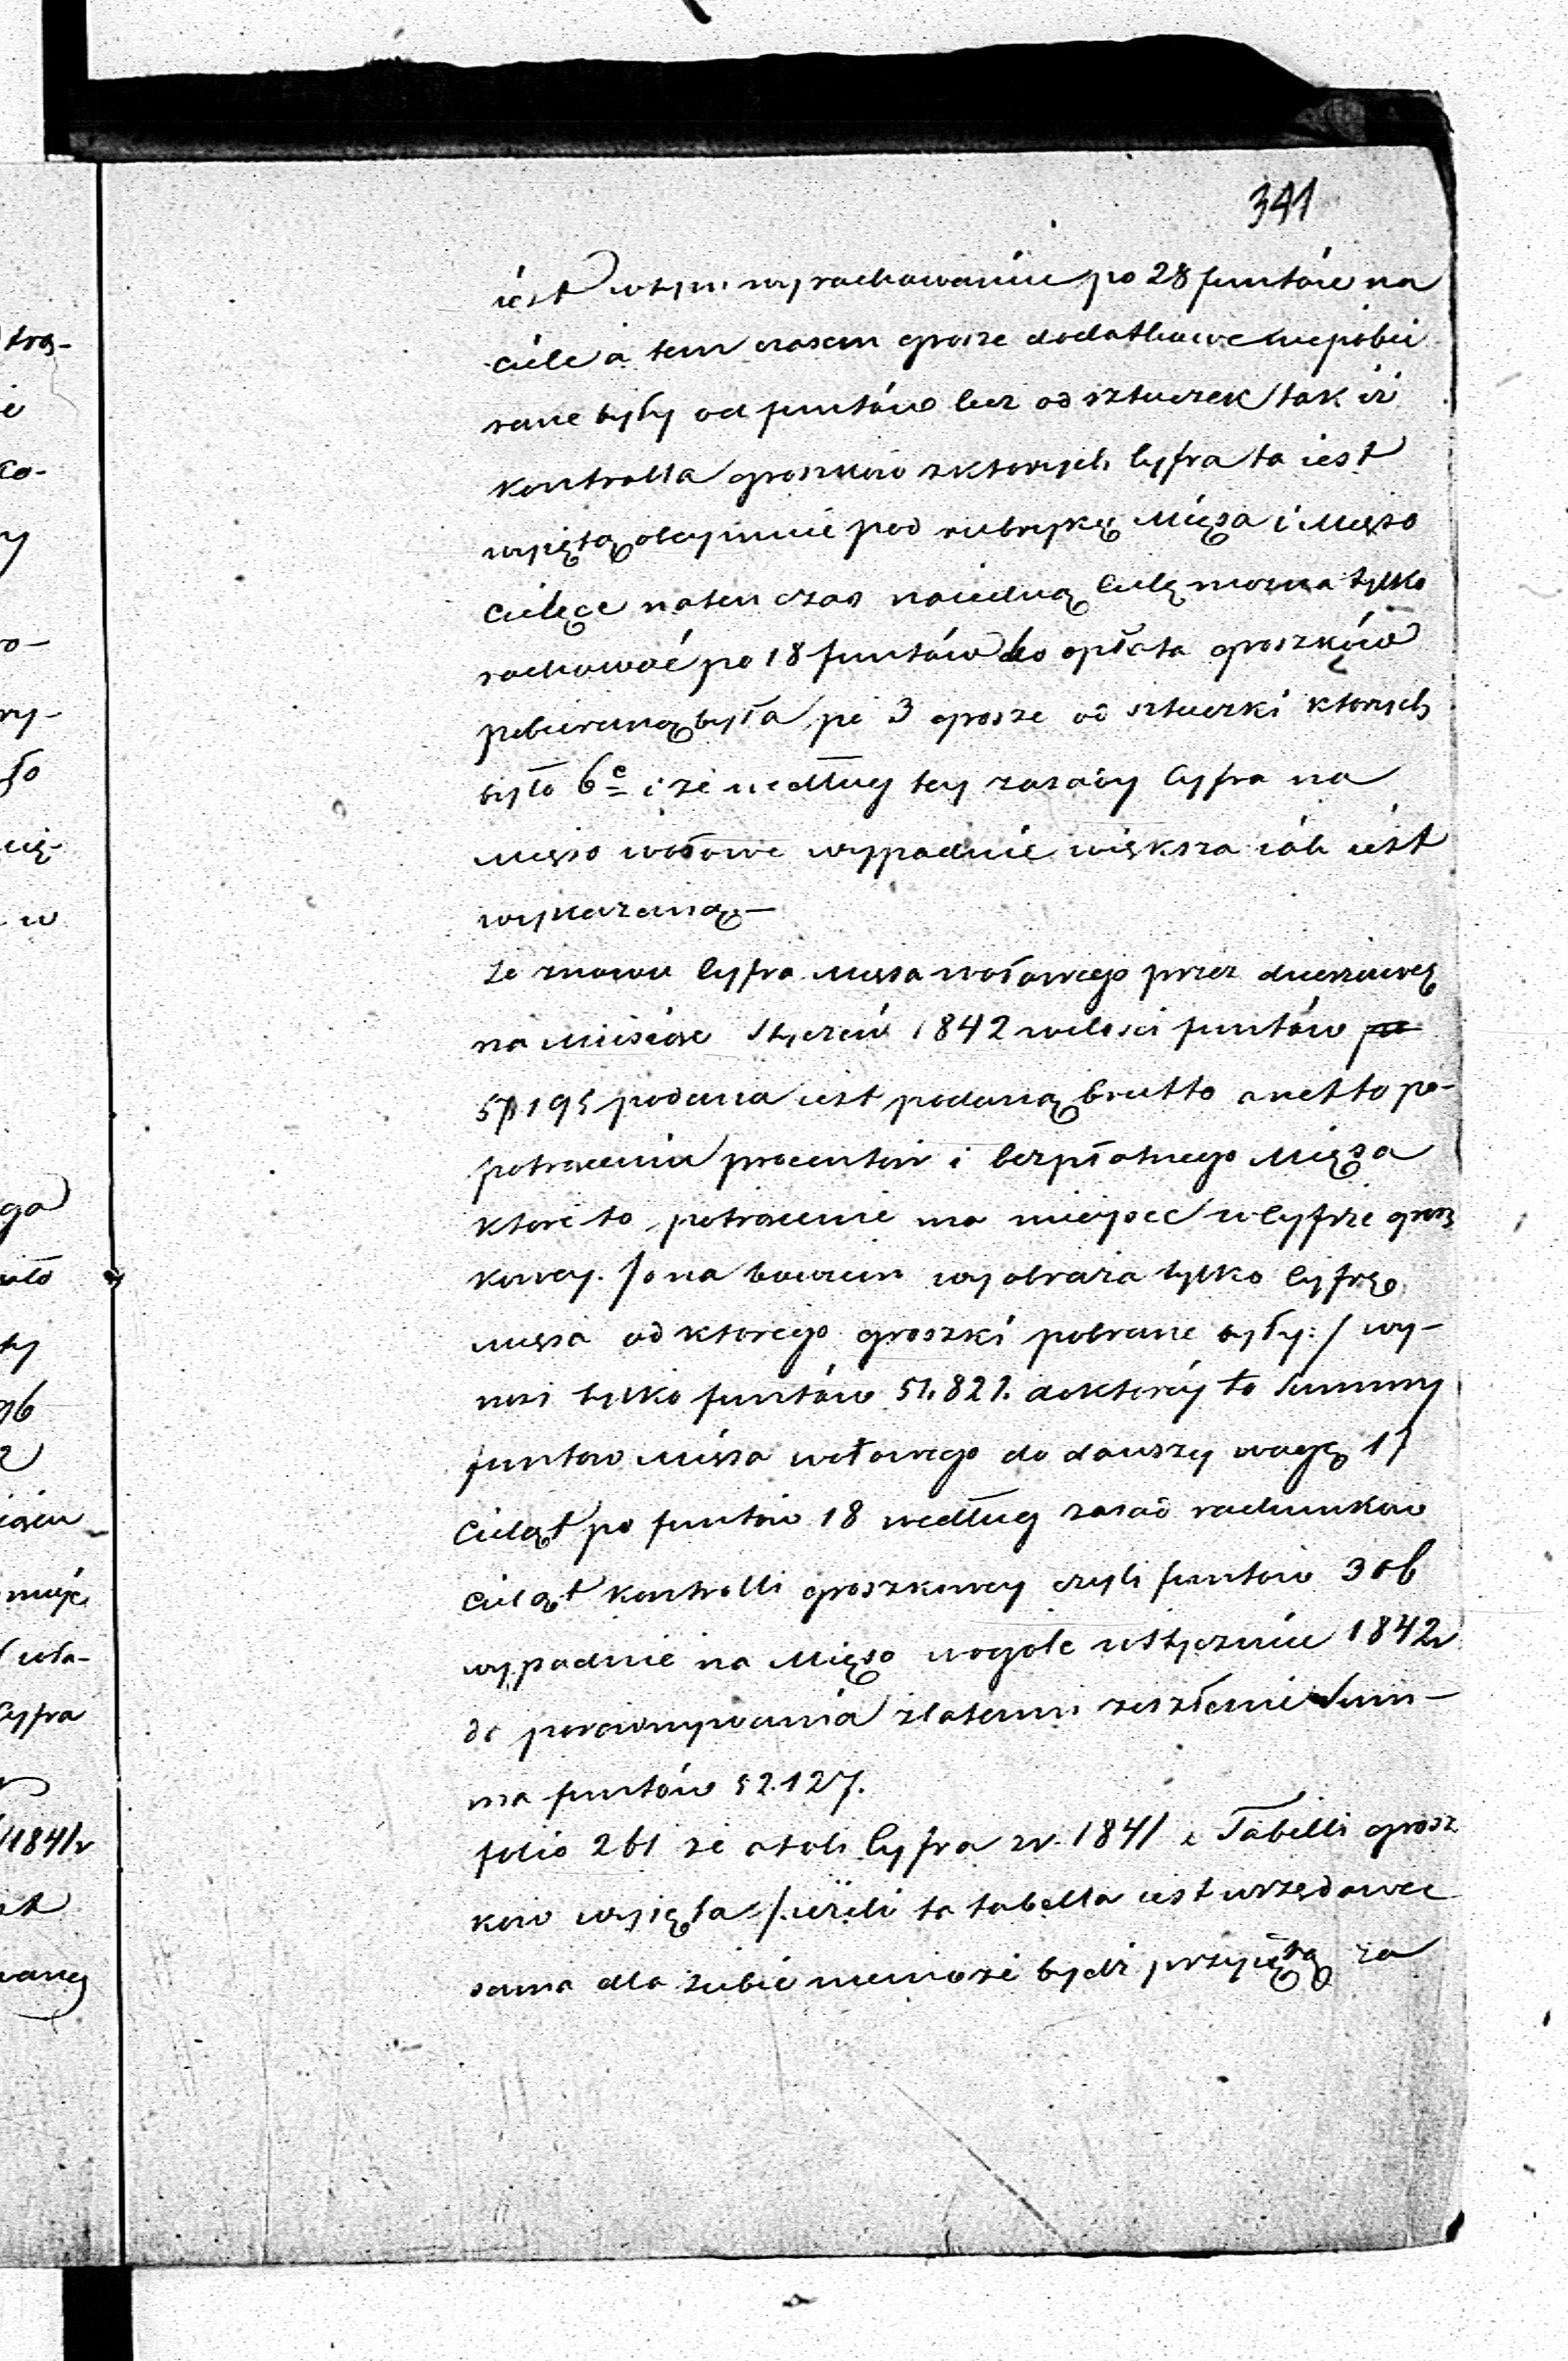 341
iest w tym wyrachowaniu po 28 funtów na
ciele a tem czasem grosze dodatkowe niepobie
rane były od funtów lecz od sztuczek tak iż
kontrolla groszków z ktorych Cyfra ta iest
wyięta obeymuie pod rubrykę Mięsa i Mięso
Cielęce naten czas naiedną Cielę można tylko
rachować po 18 funtów bo opłata groszków
pobieraną była po 3 grosze od sztuczki ktorych
było 6e i że według tey zasady Cyfra na
Mięso wołowe wypadnie większa iak iest
wykazaną —
że znowu Cyfra Mięsa wołowego przez
na Miesiąc Styczeń 1842 wilości funtów
podana iest podaną brutto a netto po-
potrąceniu procentów i bezpłatnego Mięsa
ktore to potrącenie ma mieysce w Cyfrze grosz
kowey. / ona bowiem wyobraża tylko Cyfrę
mięsa od ktorego groszki pobrane były: / wy-
nosi tylko funtów 51.821. doktorey to Summy
funtow Mięsa wołowego do dawszy wagę 17
Cieląt po funtów 18 według zasad rachunkow
Cieląt kontrolli groszkowey czyli funtow 306
wypadnie na Mięso wogóle w Styczniu 1842 r
do porownywania z latami zeszłemi Sum-
ma funtów 52.127.
folio 261 że Cyfra z r. 1841 z Tabelli grosz
kow wyięta / ieżeli ta tabella iest urzędowee
sama dla siebie niemoże bydź przyiętą za